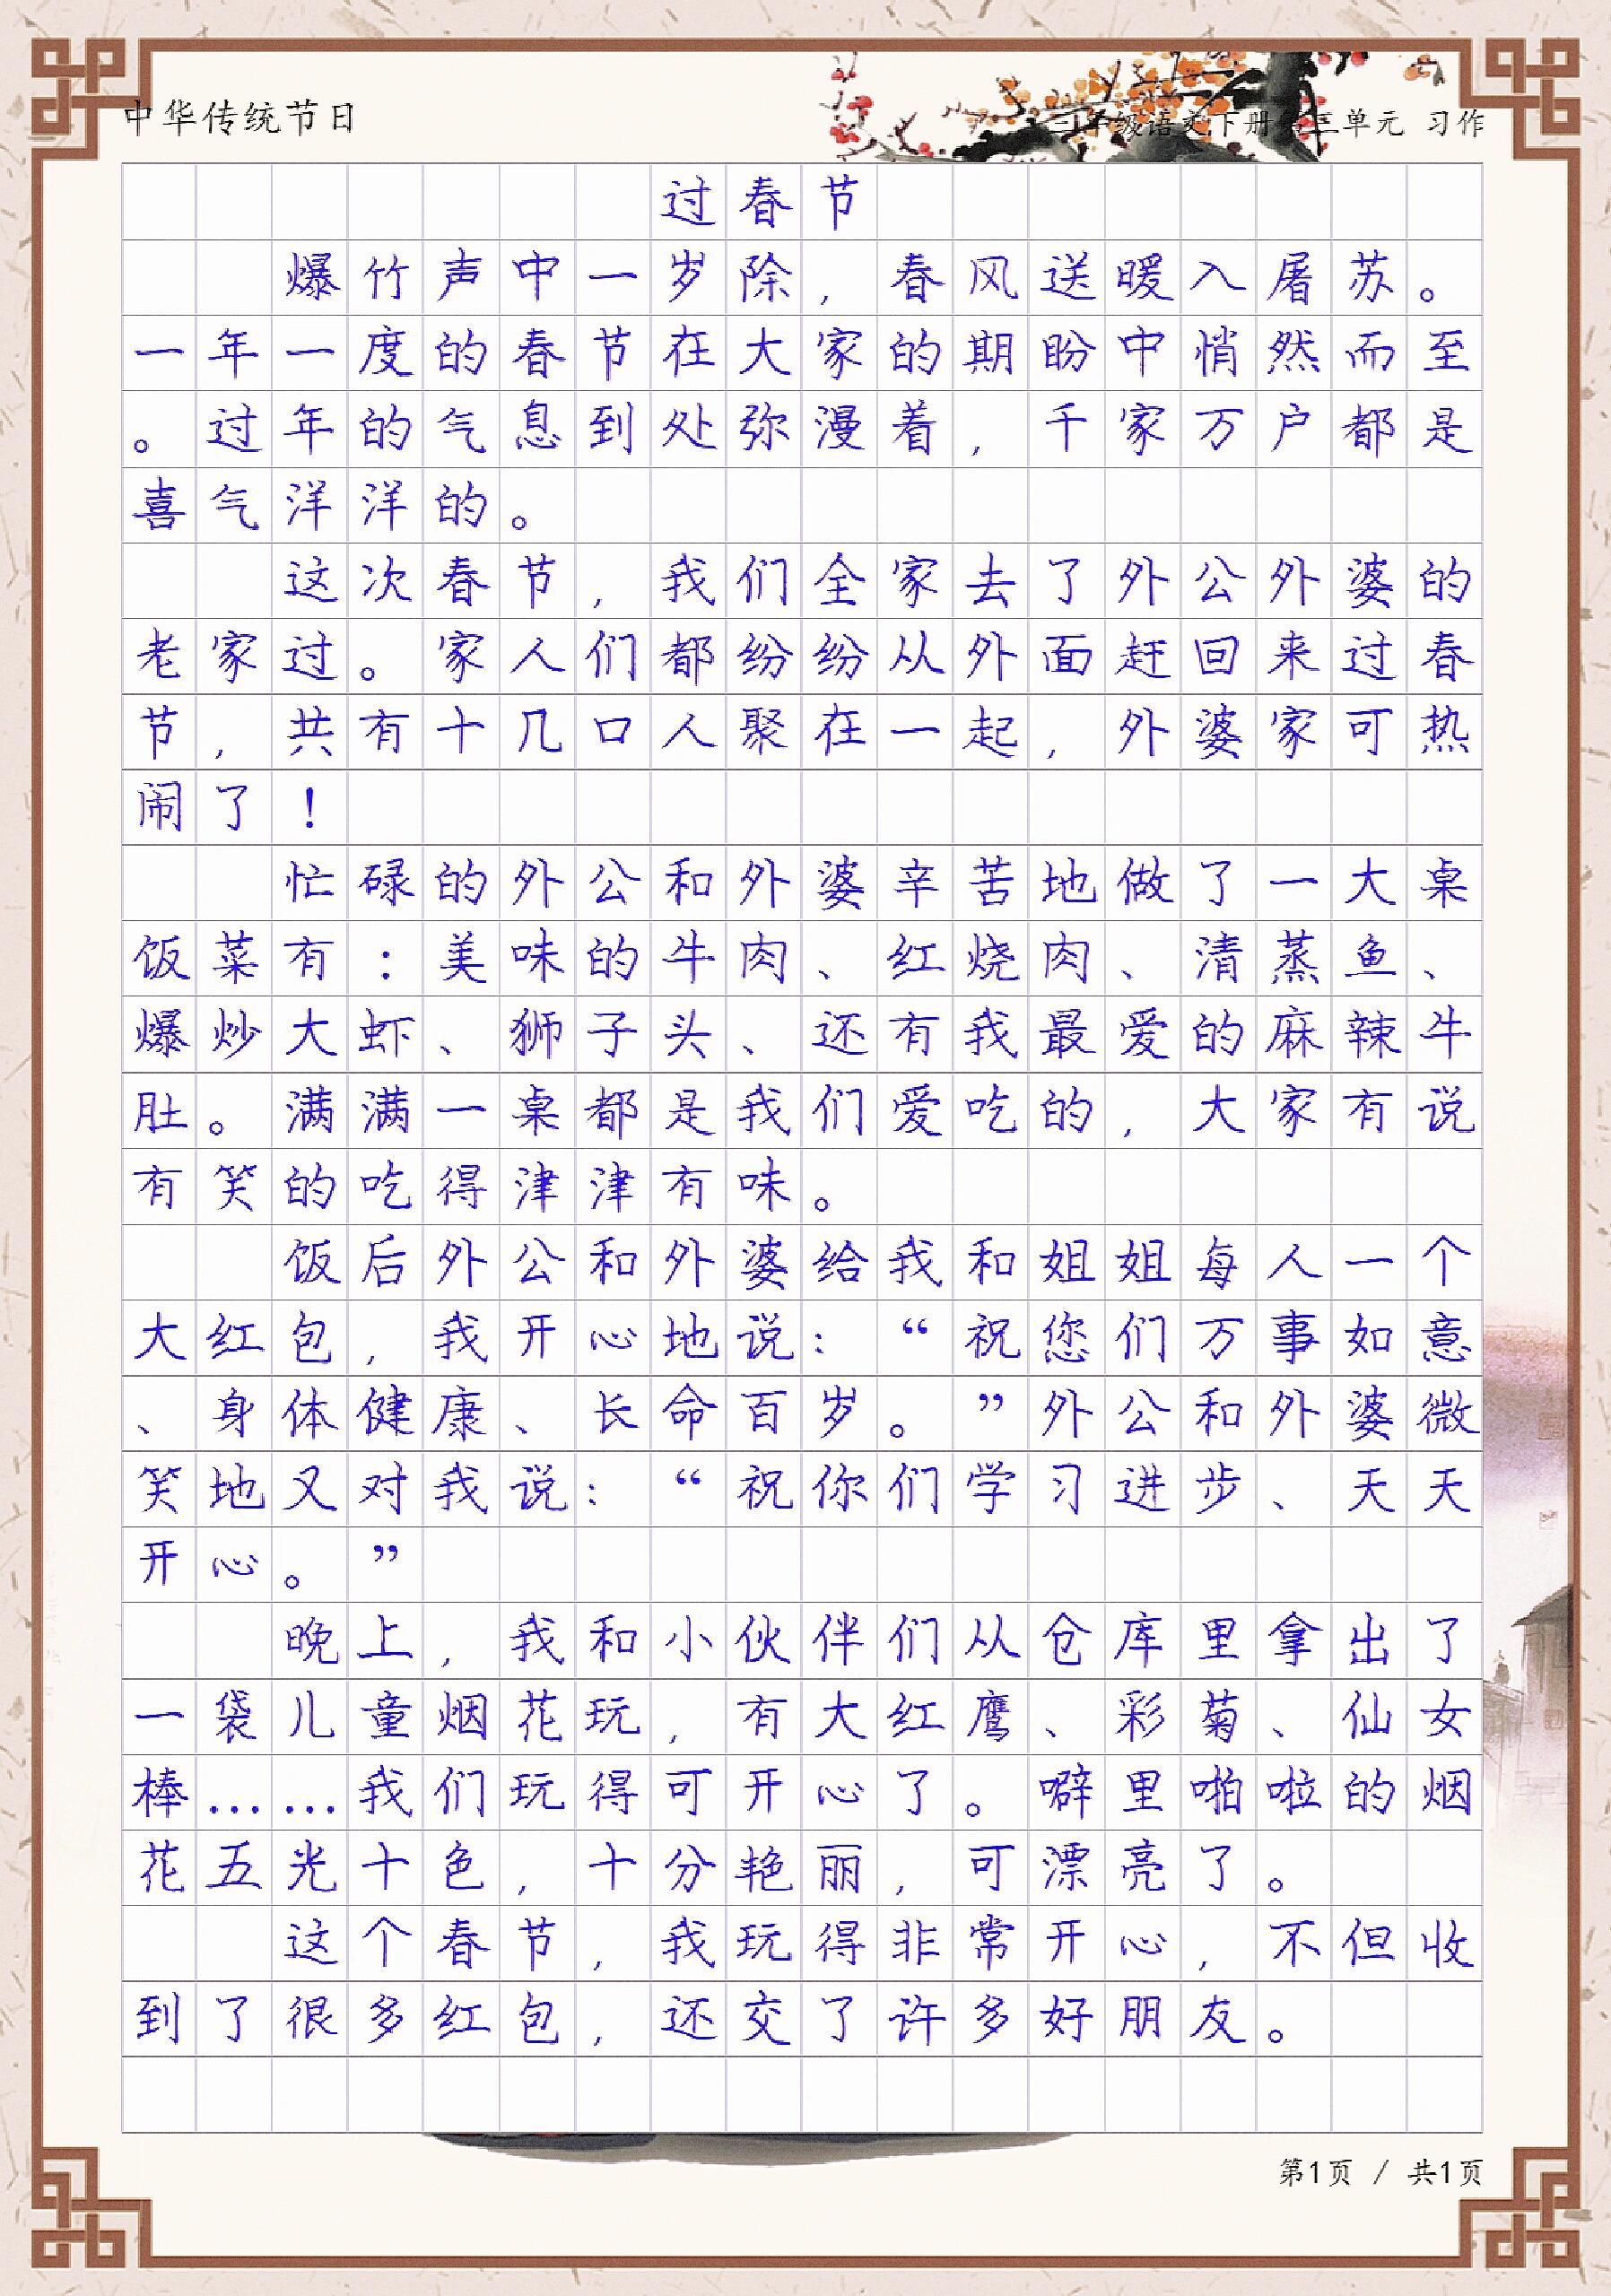 中华传统节日
三年级语文下册第三单元 习作
过春节
爆竹声中一岁除，春风送暖入屠苏。
一年一度的春节在大家的期盼中悄然而至
。过年的气息到处弥漫着，千家万户都是
喜气洋洋的。
这次春节，我们全家去了外公外婆的
老家过。家人们都纷纷从外面赶回来过春
节，共有十几口人聚在一起，外婆家可热
闹了！
忙碌的外公和外婆辛苦地做了一大桌
饭菜有：美味的牛肉、红烧肉、清蒸鱼、
爆炒大虾、狮子头、还有我最爱的麻辣牛
肚。满满一桌都是我们爱吃的，大家有说
有笑的吃得津津有味。
饭后外公和外婆给我和姐姐每人一个
大红包，我开心地说：“祝您们万事如意
、身体健康、长命百岁。”外公和外婆微
笑地又对我说：“祝你们学习进步、天天
开心。”
晚上，我和小伙伴们从仓库里拿出了
一袋儿童烟花玩，有大红鹰、彩菊、仙女
棒……我们玩得可开心了。噼里啪啦的烟
花五光十色，十分艳丽，可漂亮了。
这个春节，我玩得非常开心，不但收
到了很多红包，还交了许多好朋友。
第1页 / 共1页